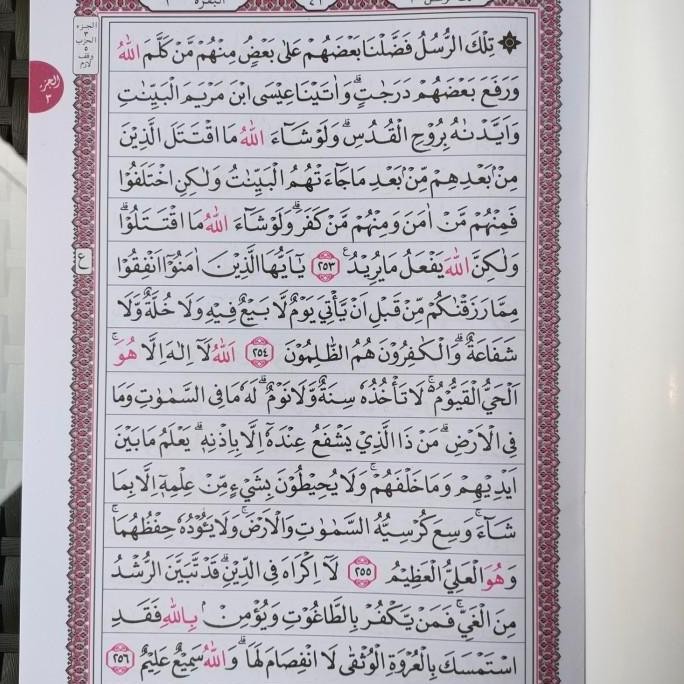 البقرة ٢
٤٢
الجزء
٣
الحزب
٥
وقف
لازم
الجزء
٣
تِلْكَ الرُّسُلُ فَضَّلْنَا بَعْضَهُمْ عَلٰى بَعْضٍۘ مِنْهُمْ مَّنْ كَلَّمَ اللّٰهُ
وَرَفَعَ بَعْضَهُمْ دَرَجٰتٍۗ وَاٰتَيْنَا عِيْسَى ابْنَ مَرْيَمَ الْبَيِّنٰتِ
وَاَيَّدْنٰهُ بِرُوْحِ الْقُدُسِۗ وَلَوْ شَاۤءَ اللّٰهُ مَا اقْتَتَلَ الَّذِيْنَ
مِنْۢ بَعْدِهِمْ مِّنْۢ بَعْدِ مَا جَاۤءَتْهُمُ الْبَيِّنٰتُ وَلٰكِنِ اخْتَلَفُوْا
فَمِنْهُمْ مَّنْ اٰمَنَ وَمِنْهُمْ مَّنْ كَفَرَۗ وَلَوْ شَاۤءَ اللّٰهُ مَا اقْتَتَلُوْاۗ
ع
وَلٰكِنَّ اللّٰهَ يَفْعَلُ مَا يُرِيْدُ ࣖ ٢٥٣ يٰٓاَيُّهَا الَّذِيْنَ اٰمَنُوْٓا اَنْفِقُوْا
مِمَّا رَزَقْنٰكُمْ مِّنْ قَبْلِ اَنْ يَّأْتِيَ يَوْمٌ لَّا بَيْعٌ فِيْهِ وَلَا خُلَّةٌ وَّلَا
شَفَاعَةٌۗ وَالْكٰفِرُوْنَ هُمُ الظّٰلِمُوْنَ ٢٥٤ اَللّٰهُ لَآ اِلٰهَ اِلَّا هُوَۚ
اَلْحَيُّ الْقَيُّوْمُۚ لَا تَأْخُذُهٗ سِنَةٌ وَّلَا نَوْمٌۗ لَهٗ مَا فِى السَّمٰوٰتِ وَمَا
فِى الْاَرْضِۗ مَنْ ذَا الَّذِيْ يَشْفَعُ عِنْدَهٗٓ اِلَّا بِاِذْنِهٖۗ يَعْلَمُ مَا بَيْنَ
اَيْدِيْهِمْ وَمَا خَلْفَهُمْۚ وَلَا يُحِيْطُوْنَ بِشَيْءٍ مِّنْ عِلْمِهٖٓ اِلَّا بِمَا
شَاۤءَۚ وَسِعَ كُرْسِيُّهُ السَّمٰوٰتِ وَالْاَرْضَۚ وَلَا يَـُٔوْدُهٗ حِفْظُهُمَاۚ
وَهُوَ الْعَلِيُّ الْعَظِيْمُ ٢٥٥ لَآ اِكْرَاهَ فِى الدِّيْنِۗ قَدْ تَّبَيَّنَ الرُّشْدُ
مِنَ الْغَيِّۚ فَمَنْ يَّكْفُرْ بِالطَّاغُوْتِ وَيُؤْمِنْۢ بِاللّٰهِ فَقَدِ
اسْتَمْسَكَ بِالْعُرْوَةِ الْوُثْقٰى لَا انْفِصَامَ لَهَاۗ وَاللّٰهُ سَمِيْعٌ عَلِيْمٌ ٢٥٦